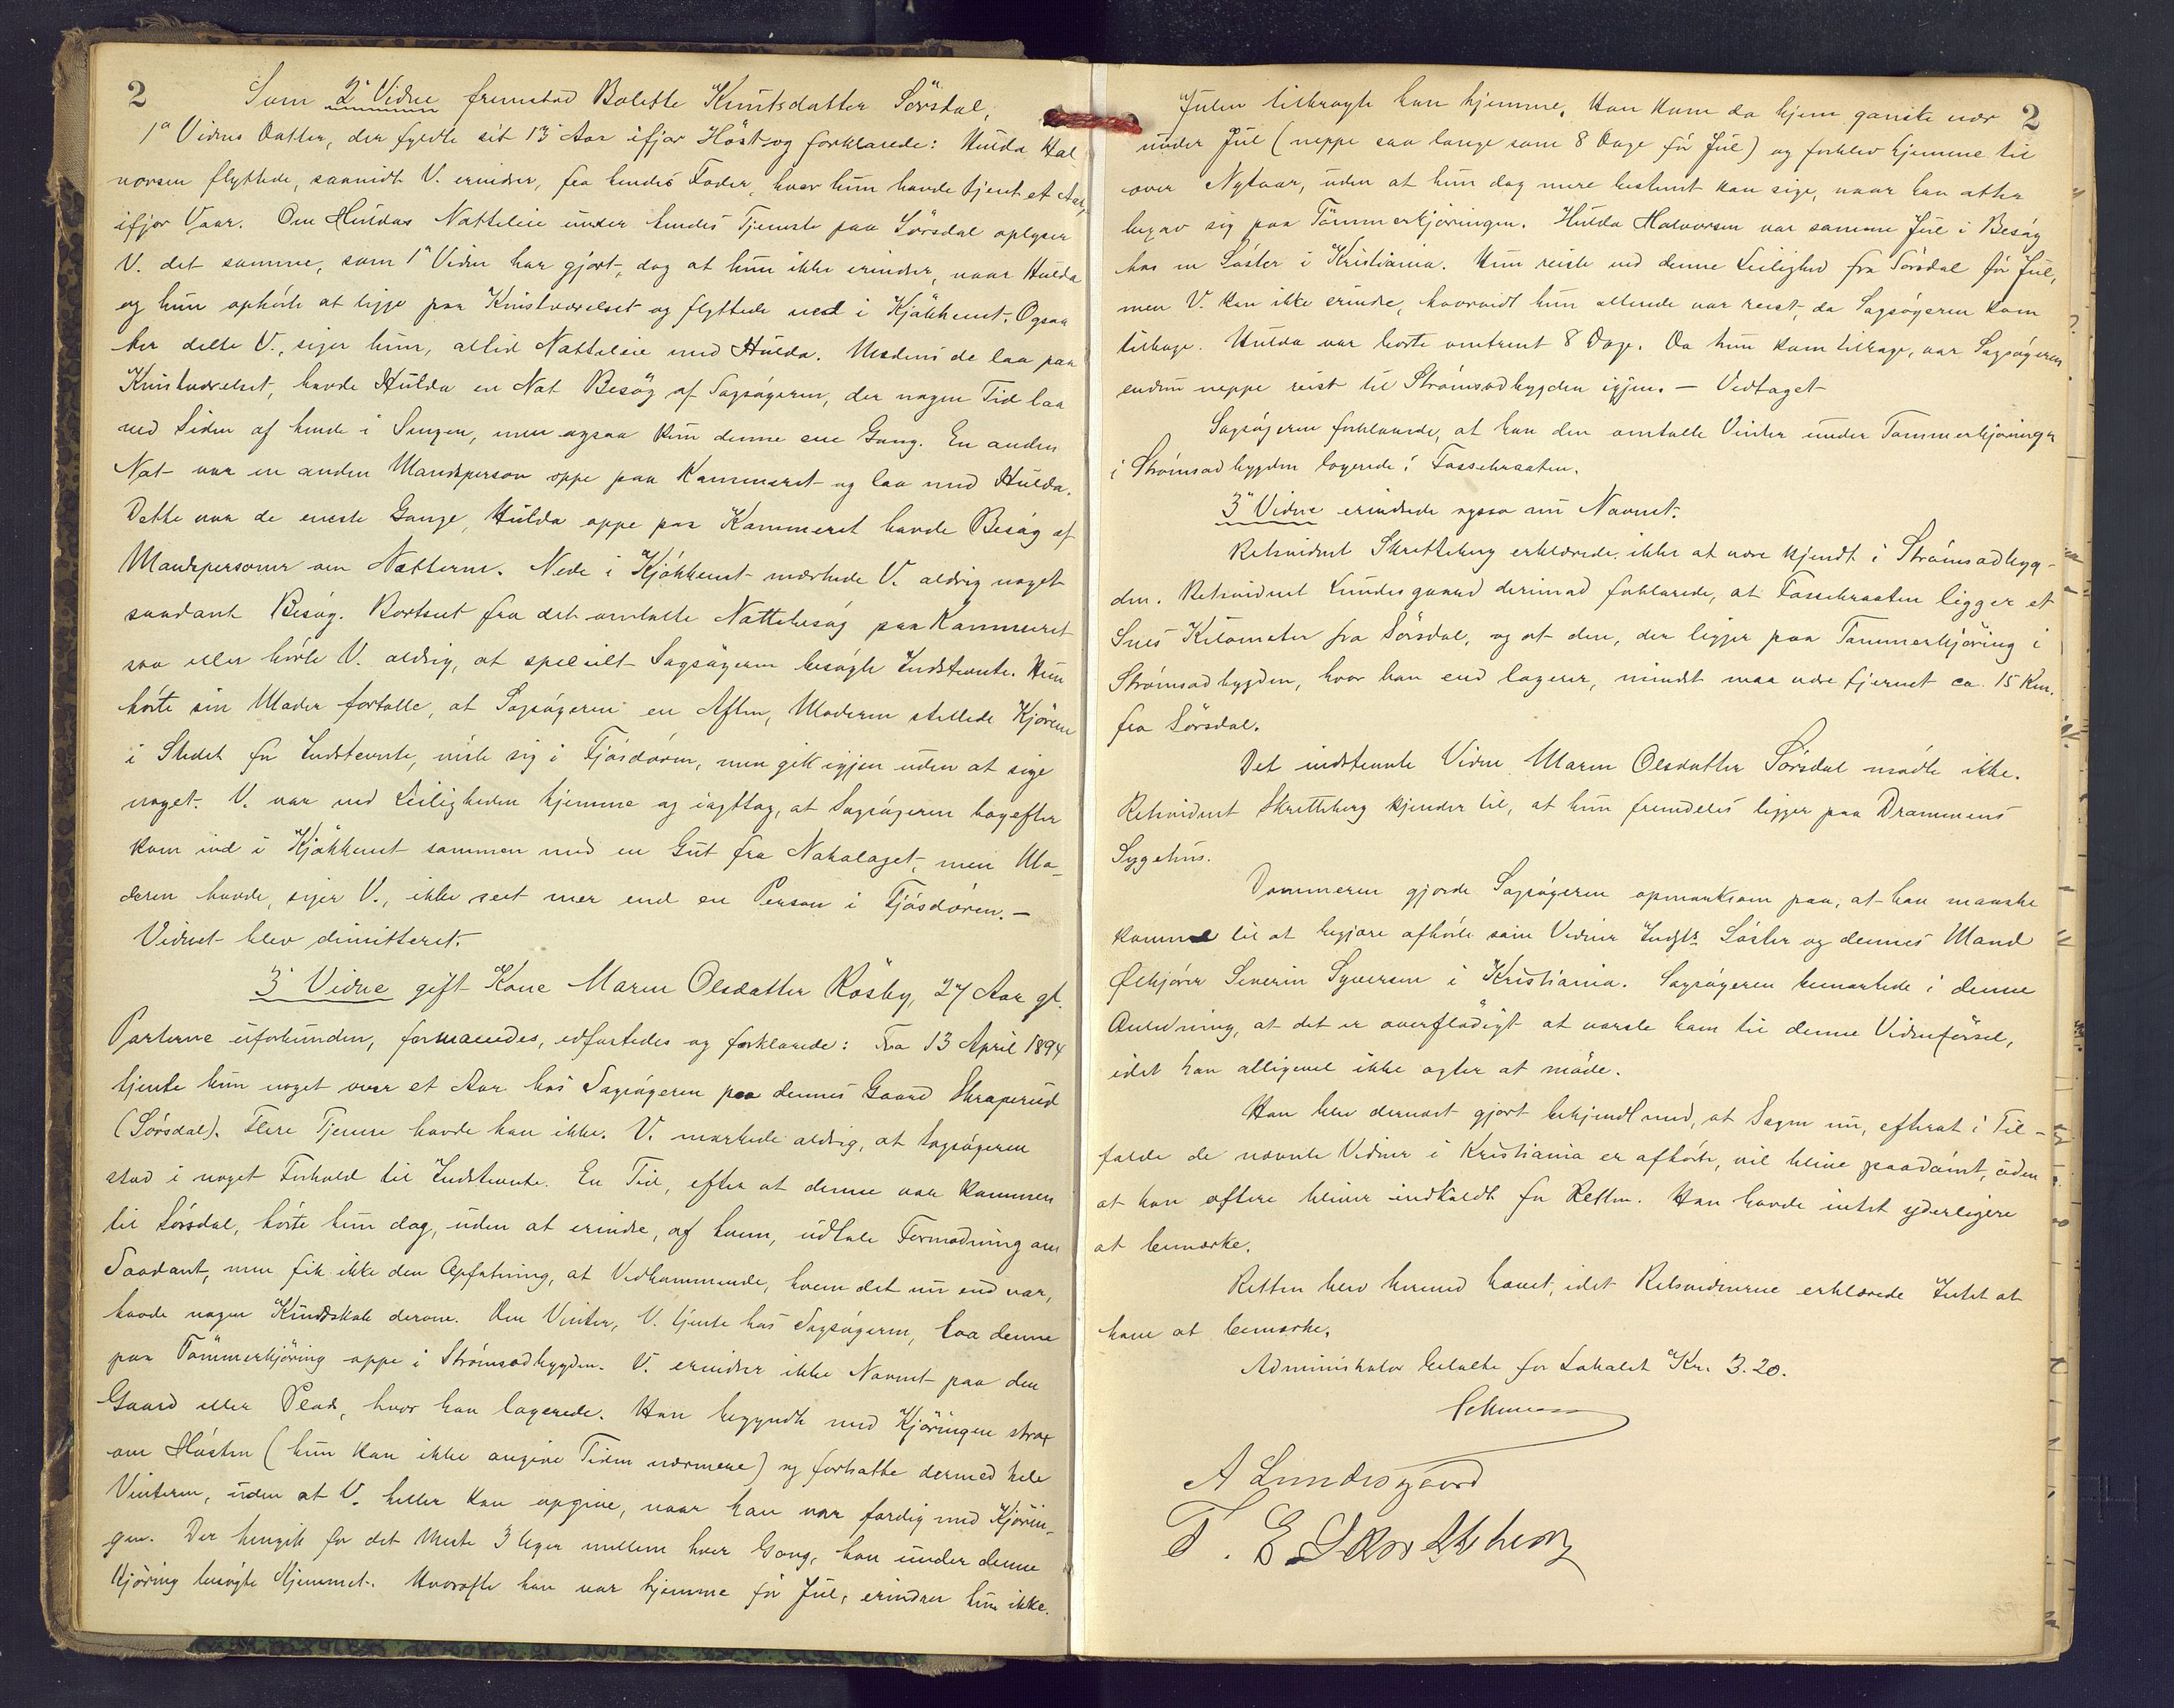 2
Som 2det Vidne fremstod Bolette Knutsdatter Sörsdal,
1ste Vidnes Datter, der fyldte sit 13de Aar ifjor Höst og forklarede: Hulda Hal
vorsen flyttede, saavidt V. erindrer, fra hendes Fader, hvor hun havde tjent et Aar,
ifjor Vaar. Om Huldas Natteleie under hendes Tjeneste paa Sörsdal oplyser
V. det samme, som 1ste Vidne har gjort, dog at hun ikke erindrer, naar Hulda
og hun ophörte at ligge paa Kvistværelset og flyttede ned i Kjökkenet. Ogsaa
her delte V., siger hun, altid Natteleie med Hulda. Medens de laa paa
Kvistværelset, havde Hulda en Nat Besög af Sagsögeren, der nogen Tid laa
ved Siden af hende i Sengen, men ogsaa kun denne ene Gang. En anden
Nat var en anden Mandsperson oppe paa Kammeret og laa med Hulda.
Dette var de eneste Gange, Hulda oppe paa Kammeret havde Besög af
Mandspersoner om Nætterne. Nede i Kjökkenet mærkede V. aldrig noget
saadant Besög. Bortset fra det omtalte Nattebesög paa Kammeret
saa eller hörte V. aldrig, at specielt Sagsögeren besögte Indstevnte. Hun
hörte sin Moder fortælle, at Sagsögeren en Aften, Moderen stellede Kjörene
i Stedet for Indstevnte, viste sig i Fjösdören, men gik igjen uden at sige
noget. V. var ved Leiligheden hjemme og iagttog, at Sagsögeren bagefter
kom ind i Kjökkenet sammen med en Gut fra Nabolaget, men Mo-
deren havde, siger V., ikke seet mer end en Person i Fjösdören. –
Vidnet blev dimitteret.
3die Vidne gift Kone Maren Olsdatter Rösby, 27 Aar gl.
Parterne uforbunden, formanedes, edfæstedes og forklarede: Fra 13 April 1894
tjente hun noget over et Aar hos Sagsögeren paa dennes Gaard Skraperud
(Sörsdal). Flere Tjenere havde han ikke. V. mærkede aldrig, at Sagsögeren
stod i noget Forhold til Indstevnte. En Tid, efter at denne var kommen
til Sörsdal, hörte hun dog, uden at erindre, af hvem, udtale Formodning om
Saadant, men fik ikke den Opfatning, at Vedkommende, hvem det nu end var,
havde nogen Kundskab derom. Den Vinter, V. tjente hos Sagsögeren, laa denne
paa Tömmerkjöring oppe i Strömsodbygden. V. erindrer ikke Navnet paa den
Gaard eller Plads, hvor han logerede. Han begyndte med Kjöringen strax
om Hösten (hun kan ikke angive Tiden nærmere) og fortsatte dermed hele
Vinteren, uden at V. heller kan opgive, naar han var færdig med Kjörin-
gen. Der hengik for det Meste 3 Uger mellem hver Gang, han under denne
Kjöring besögte Hjemmet. Hvorofte han var hjemme för Jul, erindrer hun ikke.
2
Julen tilbragte han hjemme. Han kom da hjem ganske nær
under Jul (neppe saa længe som 8 Dage för Jul) og forblev hjemme til
over Nytaar, uden at hun dog mere bestemt kan sige, naar han atter
begav sig paa Tömmerkjöringen. Hulda Halvorsen var samme Jul i Besög
hos en Söster i Kristiania. Hun reiste ved denne Leilighed fra Sörsdal för Jul,
men V. kan ikke erindre, hvorvidt hun allerede var reist, da Sagsögeren kom
tilbage. Hulda var borte omtrent 8 Dage. Da hun kom tilbage, var Sagsögeren
endnu neppe reist til Strömsodbygden igjen. – Vedtaget
Sagsögeren forklarede, at han den omtalte Vinter under Tömmerkjöringen
i Strömsodbygden logerede i Fossebraaten.
3die Vidne erindrede ogsaa nu Navnet.
Retsvidnet Skretteberg erklærede ikke at være kjendt i Strömsodbyg-
den. Retsvidnet Lundesgaard derimod forklarede, at Fossebraaten ligger et
Snes Kilometer fra Sörsdal, og at den, der ligger paa Tömmerkjöring i
Strömsodbygden, hvor han end logerer, mindst maa være fjernet ca. 15 Km.
fra Sörsdal.
Det indstevnte Vidne Maren Olsdatter Sörsdal mödte ikke.
Retsvidnet Skretteberg kjender til, at hun fremdeles ligger paa Drammens
Sygehus.
Dommeren gjorde Sagsögeren opmærksom paa, at han maaske
kommer til at begjære afhörte som Vidner Indst. Söster og dennes Mand
Ølkjörer Severin Syversen i Kristiania. Sagsögeren bemærkede i denne
Anledning, at det er overflödigt at varsle ham til denne Vidneförsel,
idet han alligevel ikke agter at möde.
Han blev dernæst gjort bekjendt med, at Sagen nu, efterat i Til-
fælde de nævnte Vidner i Kristiania er afhörte, vil blive paadömt, uden
at han oftere bliver indkaldt for Retten. Han havde intet yderligere
at bemærke.
Retten blev hermed hævet, idet Retsvidnerne erklærede Intet at
have at bemærke.
Administrator betalte for Lokalet Kr. 3.20.
A Lundesgaard
T. E. Skretteberg